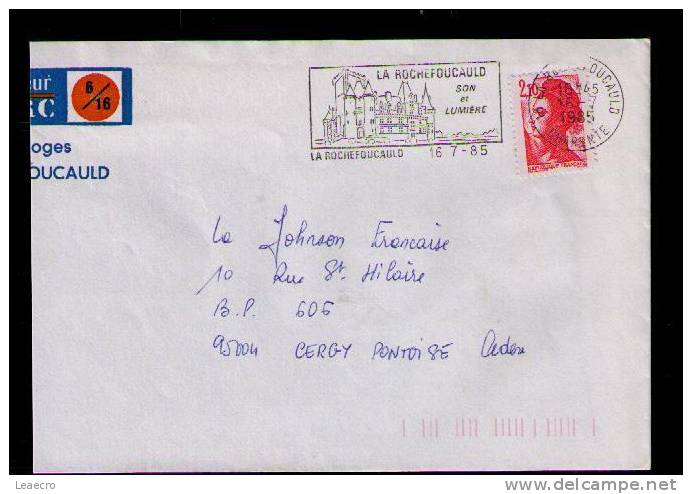 ur
RC
6/16
oges
OUCAULD
LA ROCHEFOUCAULD
SON
et
LUMIÈRE
LA ROCHEFOUCAULD 16 7-85
2,10
15H45
1985
CHARENTE
La Johnson Francaise
10 Rue St Hilaire
B.P. 606
95004 CERGY PONTOISE Cedex
Leaecro
www.delcampe.net